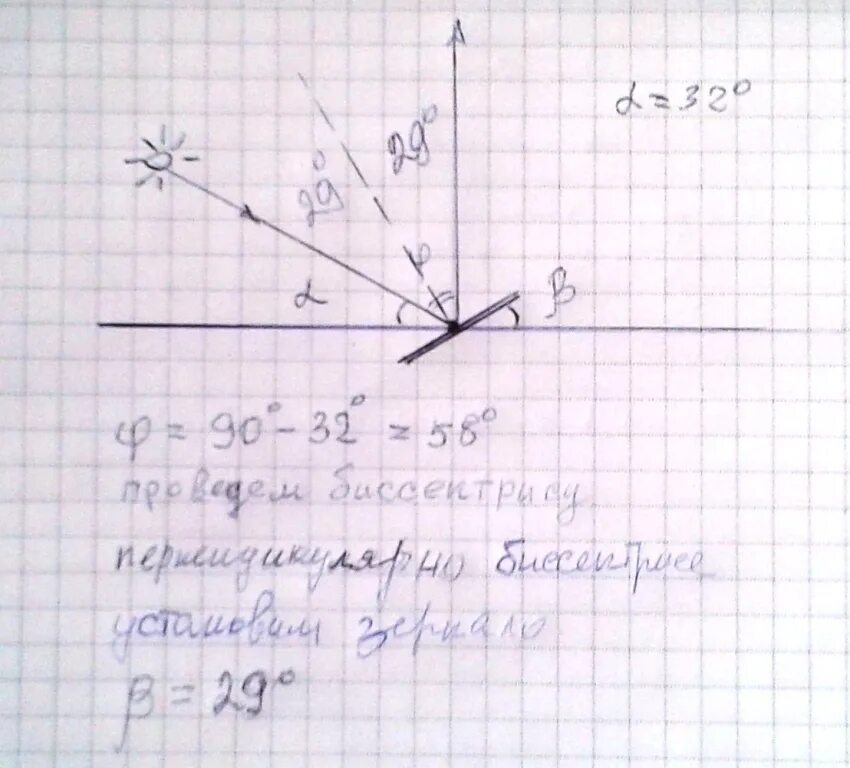 α = 32°
29°
29°
φ
α
β
φ = 90° - 32° = 58°
проведем биссектрису
перпендикулярно биссектрисе
установим зеркало
β = 29°